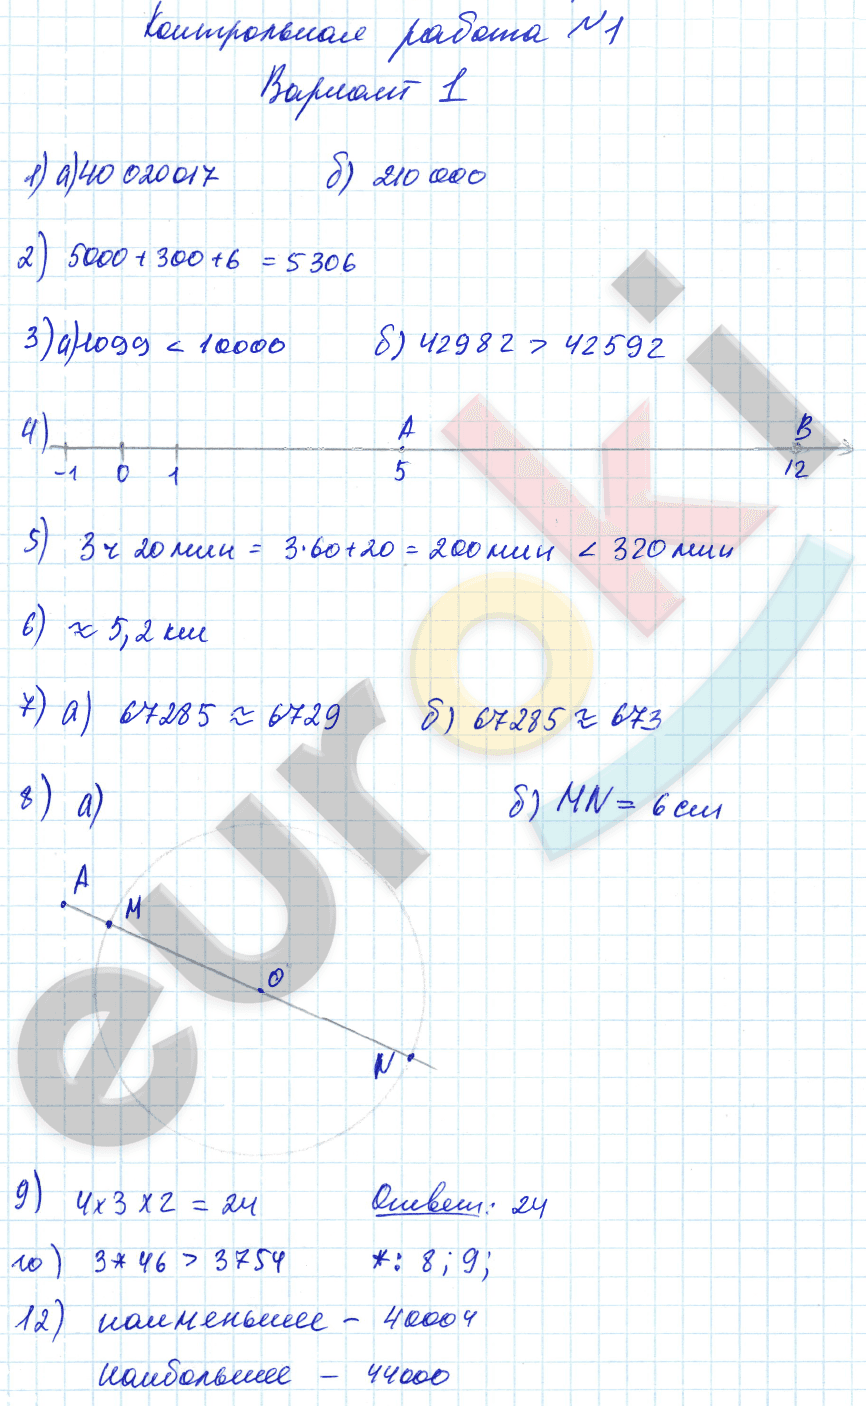 Контрольная работа №1
Вариант 1
1) а) 40 020 017 б) 210 000
2) 5000 + 300 + 6 = 5306
3) а) 1099 < 10000 б) 42982 > 42592
4) A B
-1 0 1 5 12
5) 3 ч 20 мин = 3·60+20 = 200 мин < 320 мин
6) ≈ 5,2 км
7) а) 67285 ≈ 6729 б) 67285 ≈ 673
8) а) б) MN = 6 см
A
M
O
N
9) 4 x 3 x 2 = 24 Ответ: 24
10) 3*46 > 3754 *: 8; 9;
12) наименьшее – 40004
наибольшее – 44000
euroki